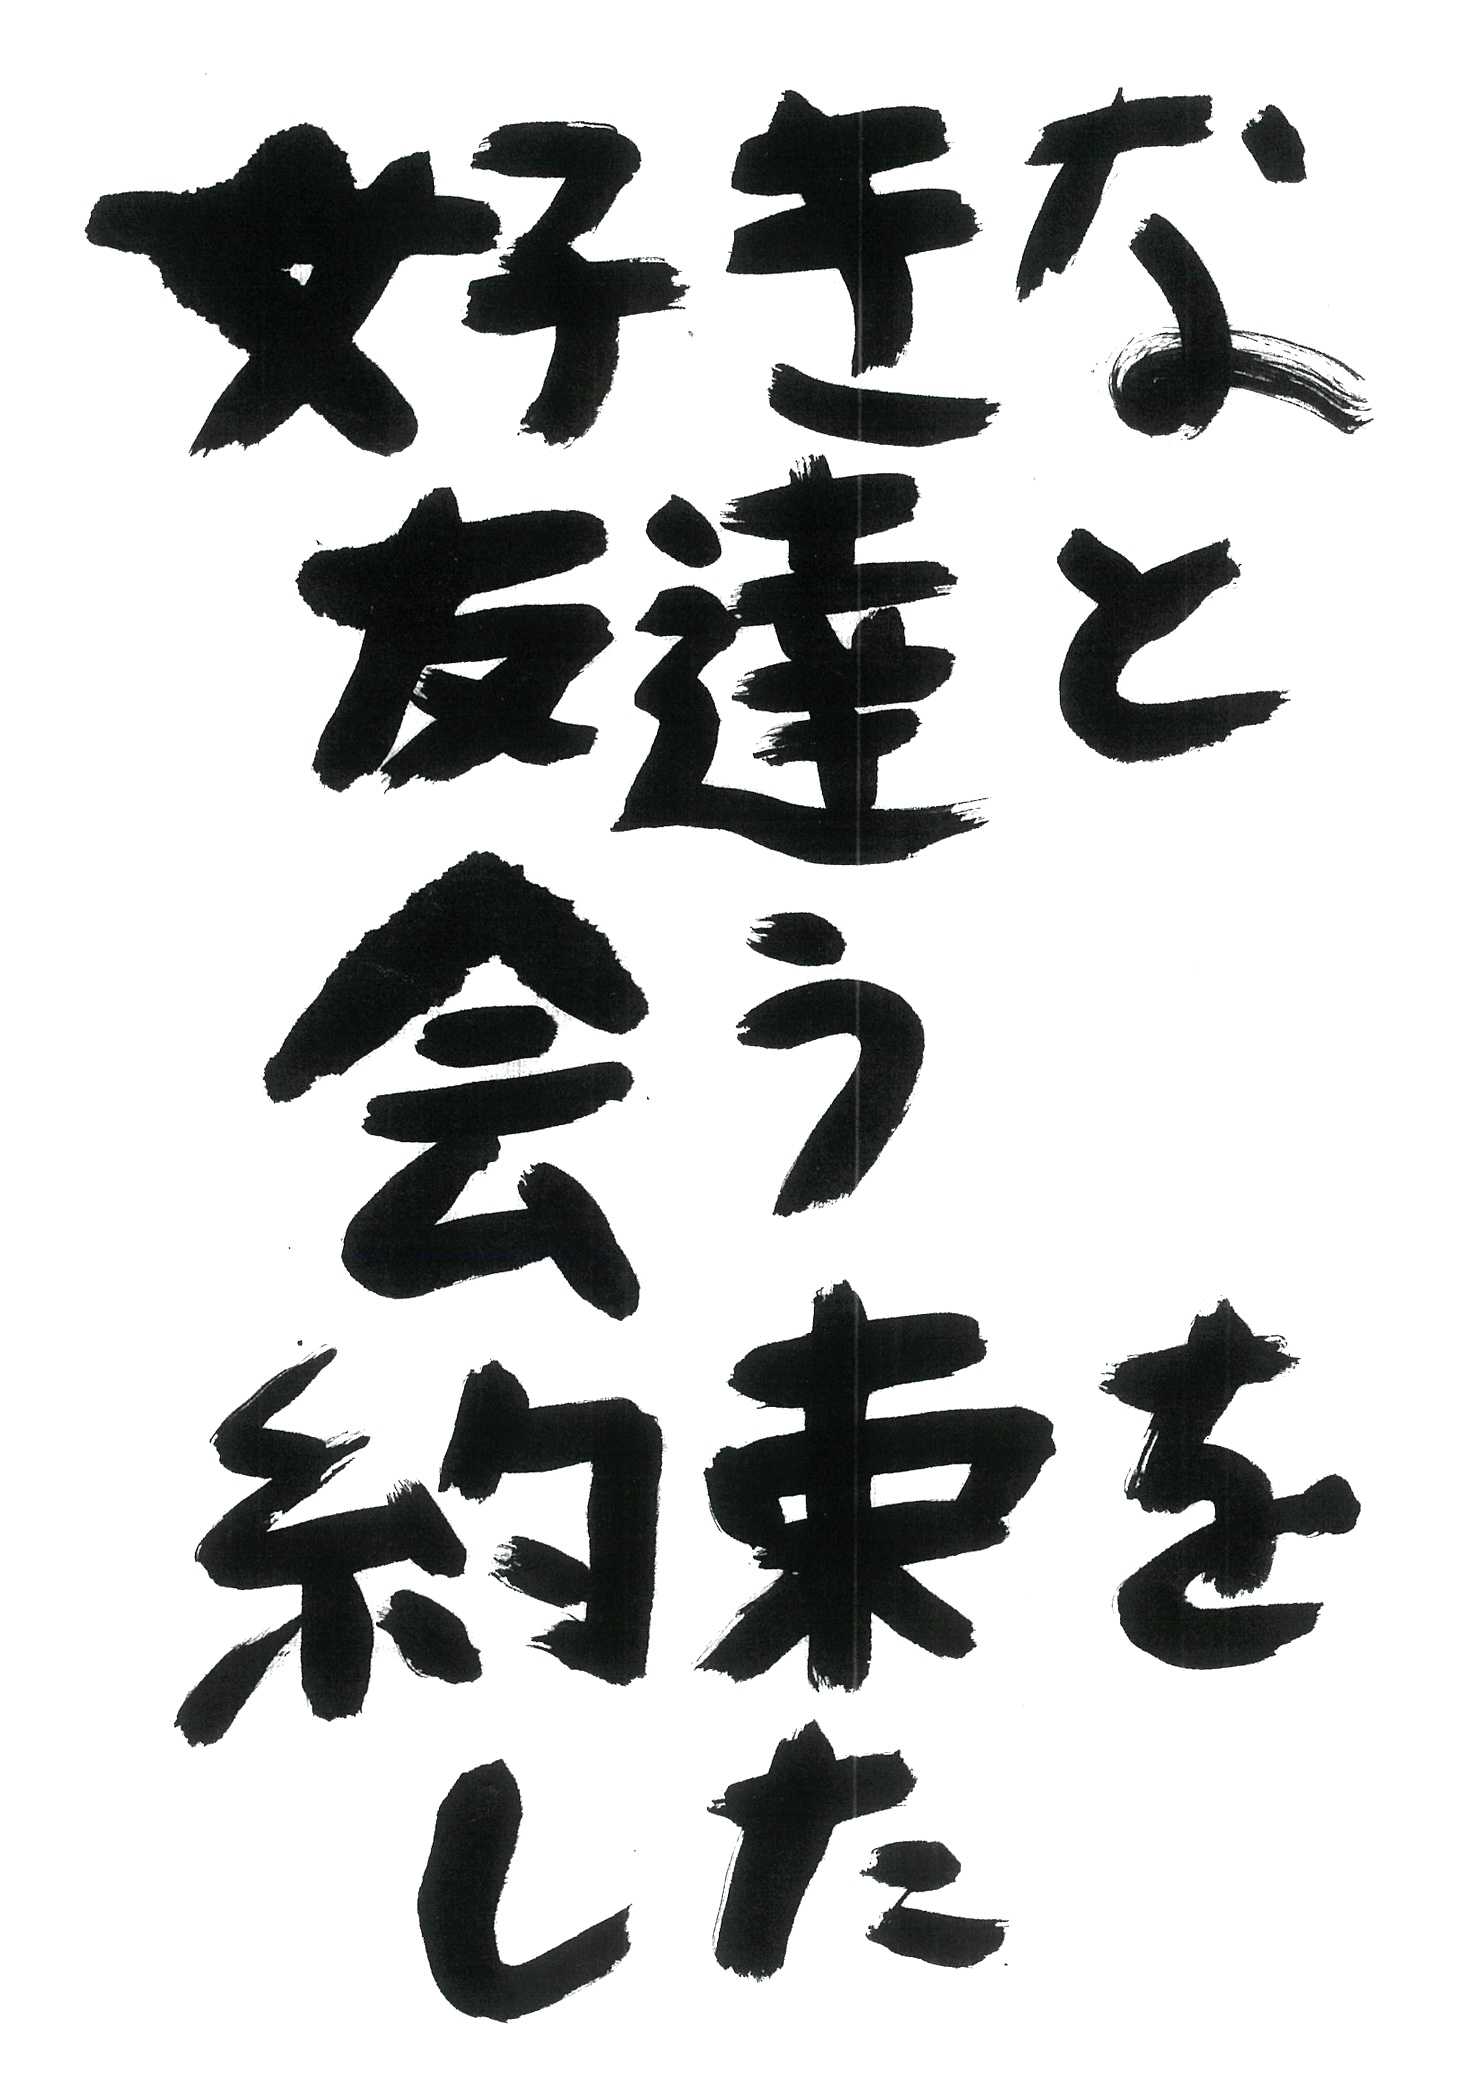 好きな
友達と
会う
約束を
した